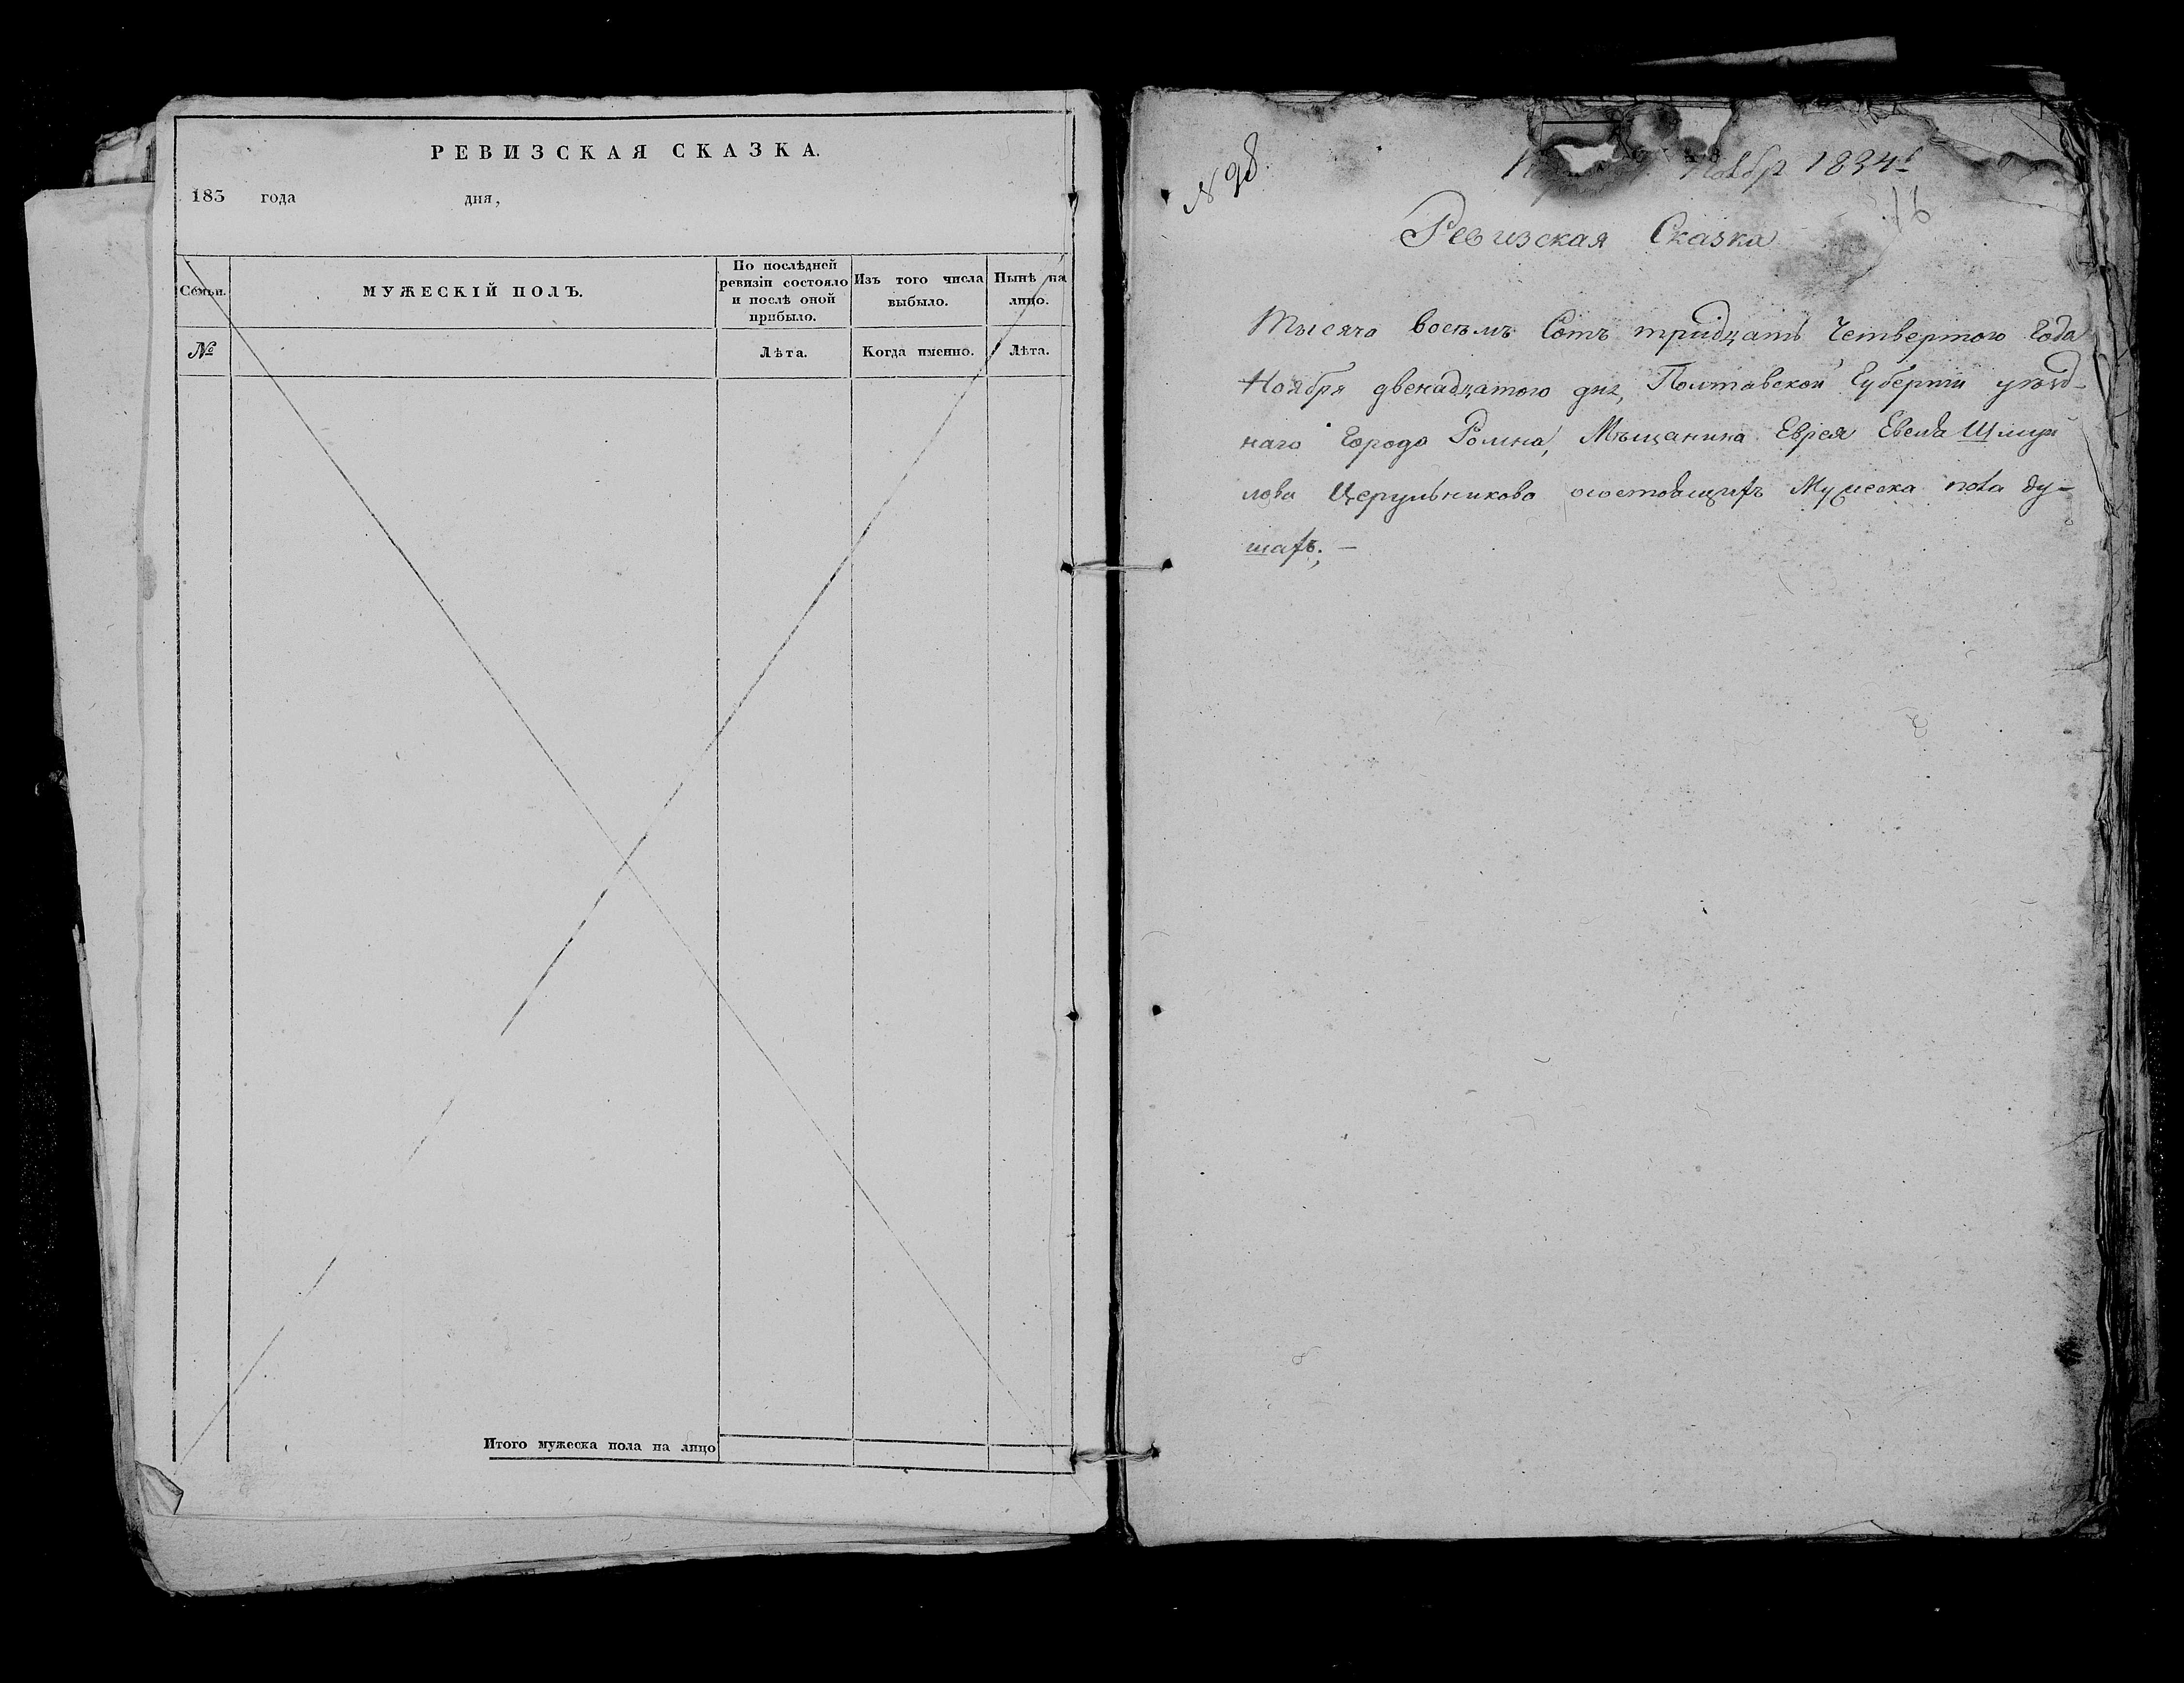 РЕВИЗСКАЯ СКАЗКА.
183 года дня,
Семьи.
МУЖЕСКІЙ ПОЛЪ.
По послѣдней
ревизіи состояло
и послѣ оной
прибыло.
Изъ того числа
выбыло.
Нынѣ на
лицо.
№
Лѣта.
Когда именно.
Лѣта.
Итого мужеска пола на лицо
N 98.
Ноябр 1834
16
Ревизская Сказка
Тысяча восемъ Сотъ тридцать Четвертого Года
Ноября двенадцатого дня, Полтавской Губерніи уѣзд-
наго Города Ромна, Мѣщанина Еврея Евеля Шмуи
лова Церульникова осостоящихъ Мужеска пола ду-
шахъ. —